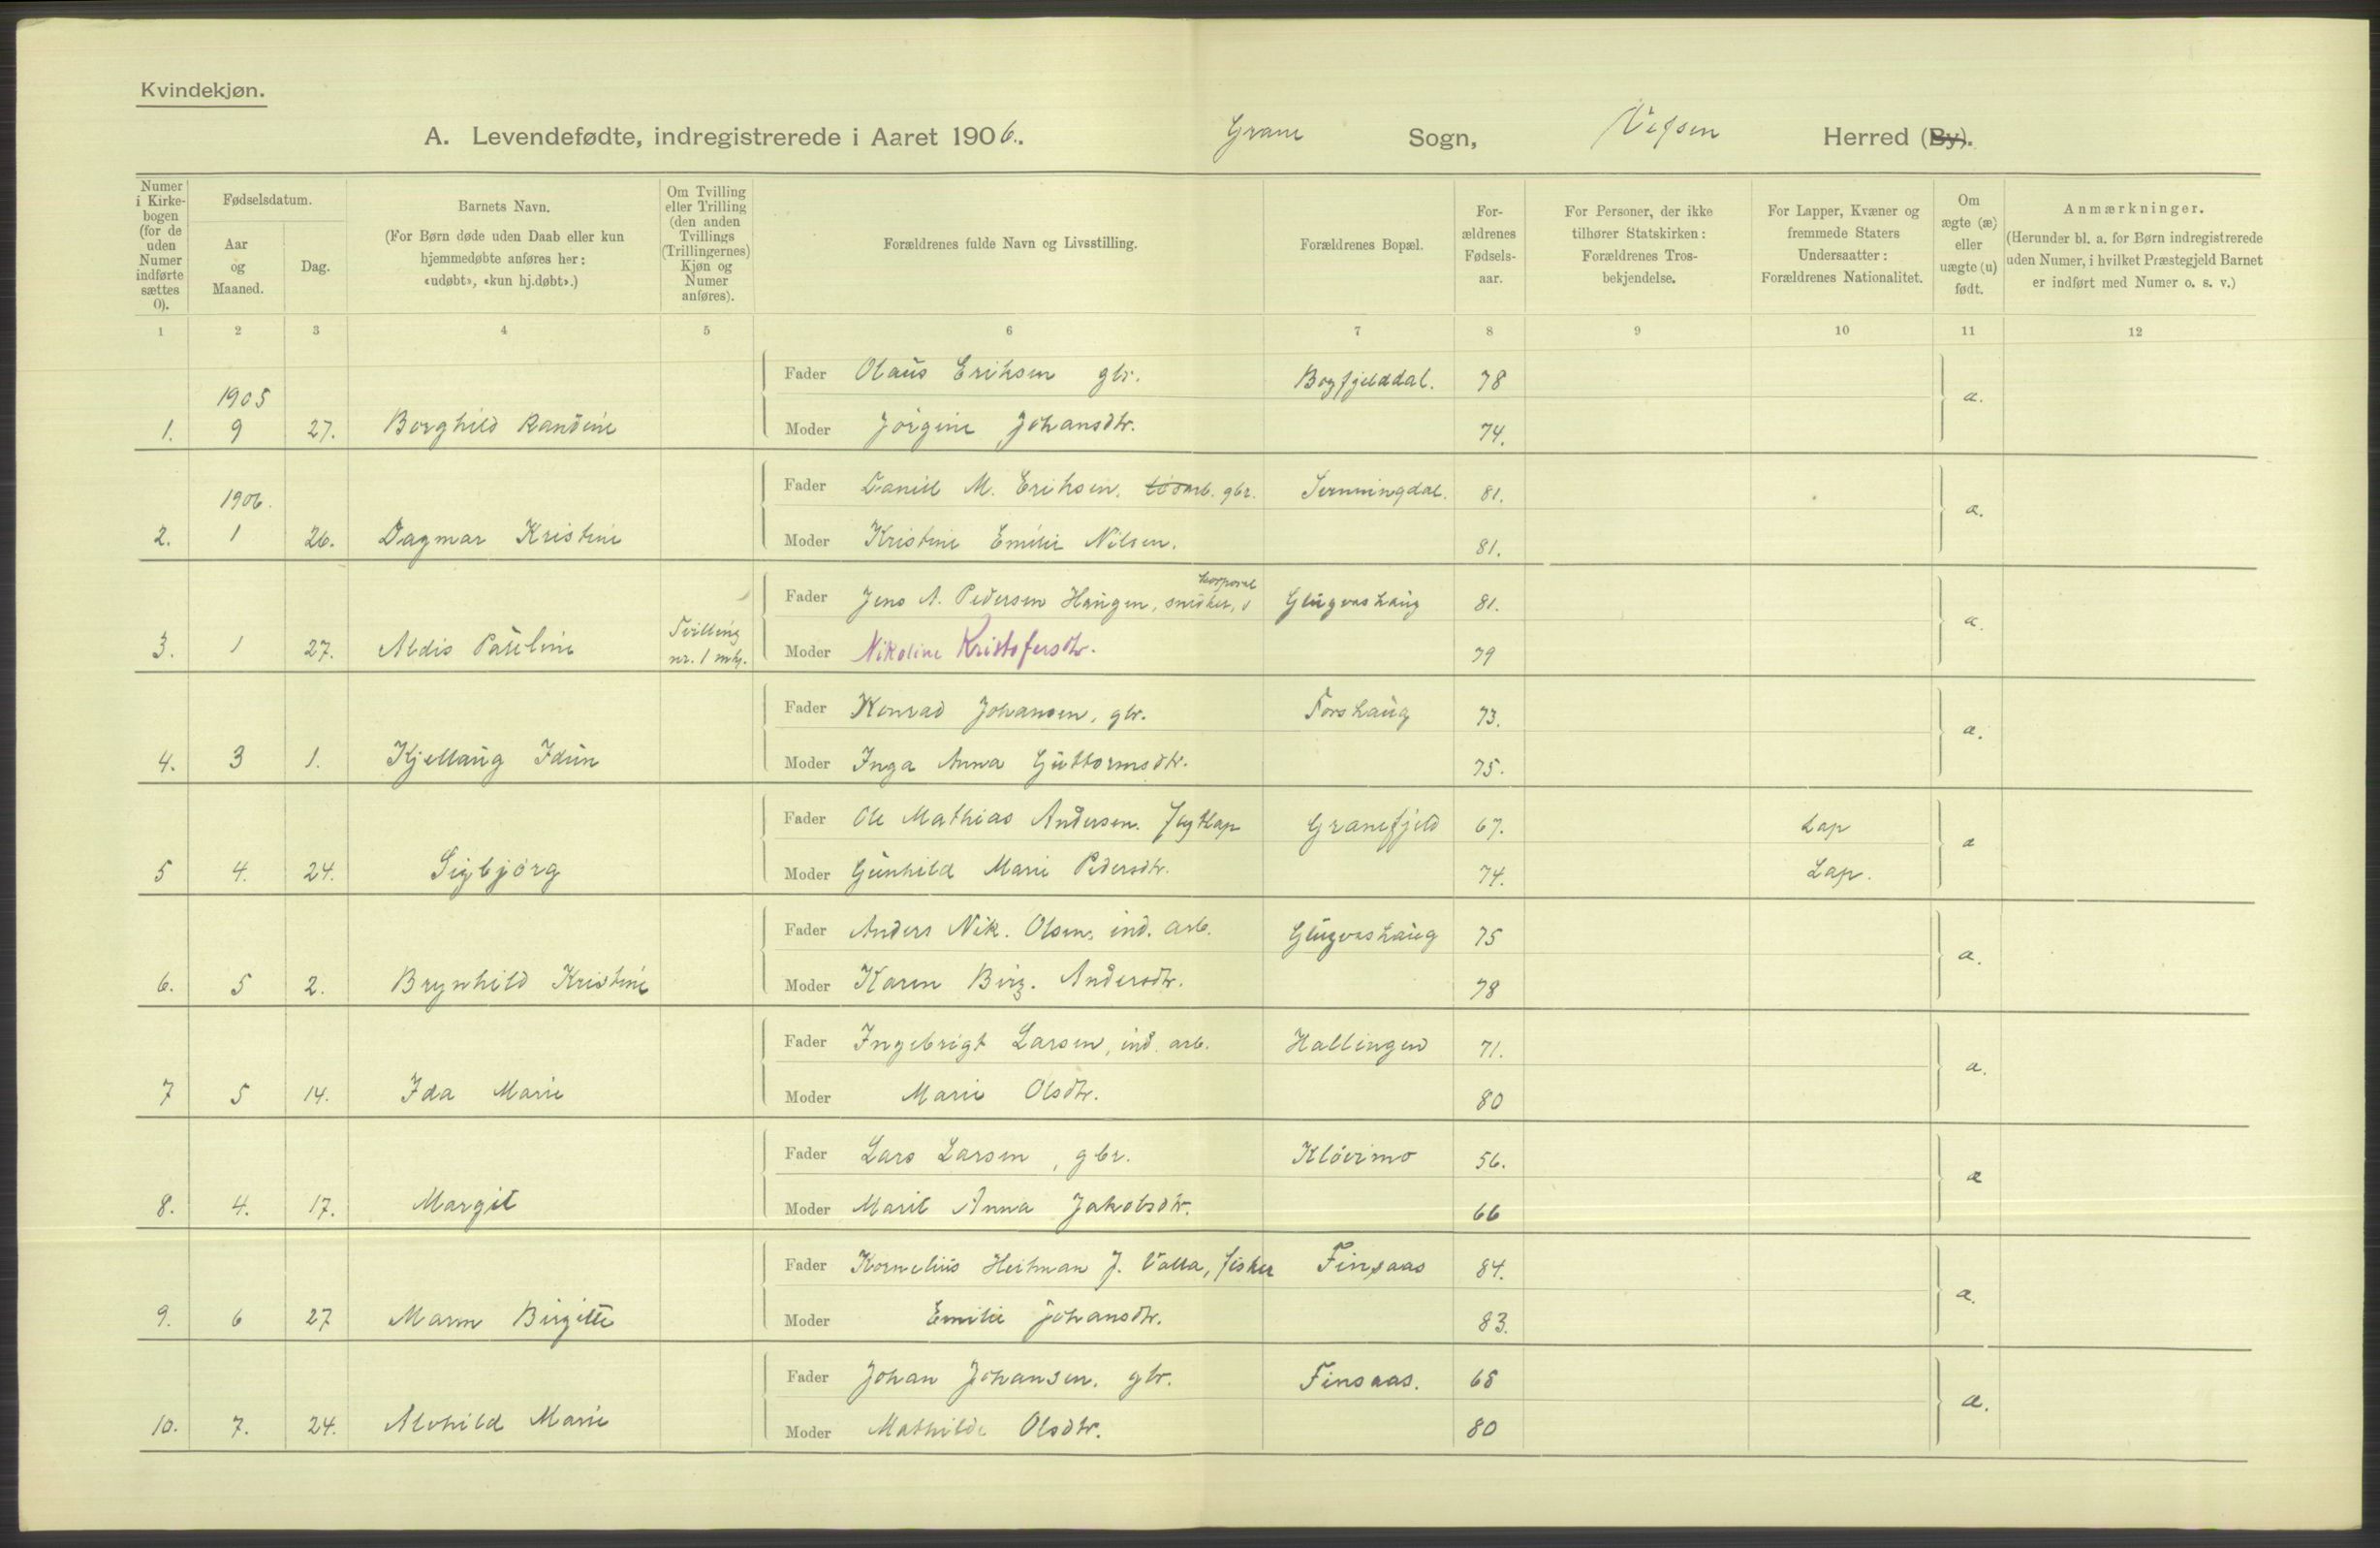 Kvindekjøn.
A. Levendefødte, indregistrerede i Aaret 1906. Grane Sogn, Vefsen Herred (By).
Numer i Kirkebogen (for de uden Numer indførte sættes 0).
Fødselsdatum.
Aar og Maaned.
Dag.
Barnets Navn.
(For Børn døde uden Daab eller kun hjemmedøbte anføres her: «udøbt», «kun hj.døbt».)
Om Tvilling eller Trilling (den anden Tvillings (Trillingernes) Kjøn og Numer anføres).
Forældrenes fulde Navn og Livsstilling.
Forældrenes Bopæl.
Forældrenes Fødselsaar.
For Personer, der ikke tilhører Statskirken: Forældrenes Trosbekjendelse.
For Lapper, Kvæner og fremmede Staters Undersaatter: Forældrenes Nationalitet.
Om ægte (æ) eller uægte (u) født.
Anmærkninger.
(Herunder bl. a. for Børn indregistrerede uden Numer, i hvilket Præstegjeld Barnet er indført med Numer o. s. v.)
1 2 3 4 5 6 7 8 9 10 11 12
Fader Olaus Eriksen gbr. Bogfjelddal. 78
1905
1. 9 27. Borghild Randine Moder Jørgine Johansdtr. 74. æ.
Fader Daniel M. Eriksen, løsarb. gbr. 81.
1906.
2. 1 26. Dagmar Kristine Moder Kristine Emilie Nilsen. 81. æ.
Fader Jens A. Pedersen Haugen, snedker, korporal Glugvashaug 81.
3. 1 27. Aldis Pauline Tvilling nr. 1 mkj. Moder Nikoline Kristofersdtr. 79 æ.
Fader Konrad Johansen, gbr. Forshaug 73.
4. 3 1. Kjellaug Idun Moder Inga Anna Guttormsdtr. 75. æ.
Fader Ole Mathias Andersen. flytlap Granefjeld 67. Lap
5 4. 24. Sigbjørg Moder Gunhild Marie Pedersdtr. 74. Lap. æ
Fader Anders Nik. Olsen, ind. arb. Glugvashaug 75
6. 5 2. Brynhild Kristine Moder Karen Birg. Andersdtr. 78 æ.
Fader Ingebrigt Larsen, ind. arb. Hallingen 71.
7 5 14. Ida Marie Moder Marie Olsdtr. 80 æ.
Fader Lars Larsen, gbr. Kløvimo 56.
8. 4. 17. Margit Moder Marit Anna Jakobsdtr. 66 æ
Fader Kornelius Heitman J. Valla, fisker Finsaas 84.
9. 6 27 Maren Birgitte Moder Emilie Johansdtr. 83. æ.
Fader Johan Johansen. gbr. Finsaas. 68
10. 7. 24. Alvhild Marie Moder Mathilde Olsdtr. 80 æ.